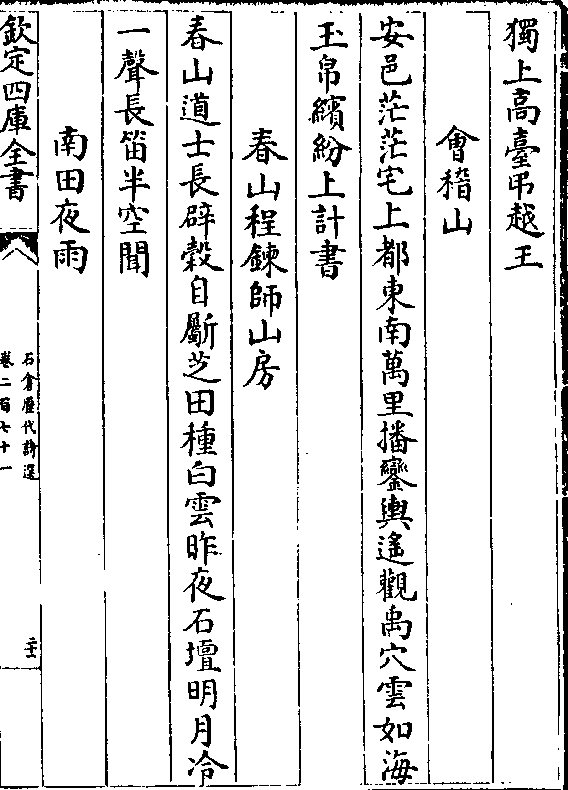 獨上高臺弔越王
會稽山
安邑茫茫宅上都東南萬里播鑾輿遙觀禹穴雲如海
玉帛繽紛上計書
春山程鍊師山房
春山道士長辟穀自斸芝田種白雲昨夜石壇明月冷
一聲長笛半空聞
南田夜雨
欽定四庫全書
石倉歷代詩選
卷二百七十一